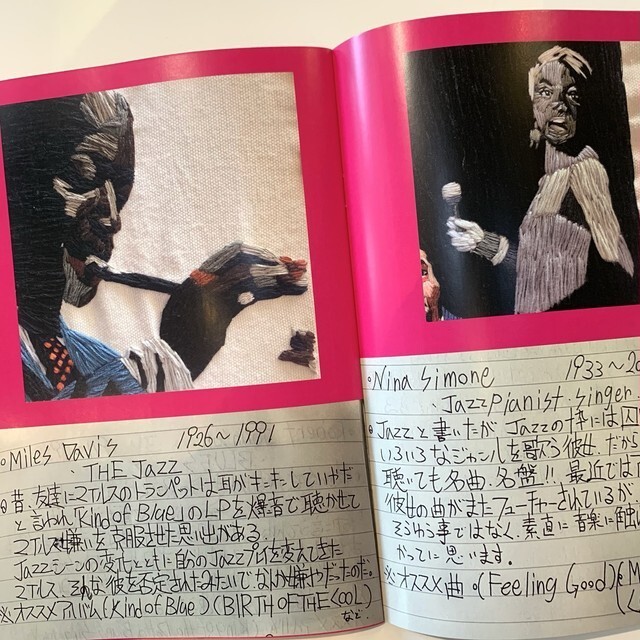 ◦Miles Davis 1926〜1991
・THE Jazz
◎昔、友達にマイルスのトランペットは耳がキーキーしていやだ
と言われ「Kind of Blue」のLPを爆音で聴かせて
マイルス嫌いを克服させた思い出がある。
Jazzシーンの変化とともに自分のJazzプレイを変えてきた
マイルス、そんな彼を否定されたみたいで、なんか嫌やだったのだ。
※オススメアルバム(Kind of Blue)(BIRTH OF THE COOL)
など
◦Nina Simone 1933〜20
・Jazz pianist・singer
◎Jazzと書いたがJazzの枠には囚
いろいろなジャンルを歌う彼女。だから
聴いても名曲、名盤!!、最近では
彼女の曲がまたフューチャーされているが
そういう事ではなく、素直に音楽に触れ
かってに思います。
※オススメ曲 ◦(Feeling Good)